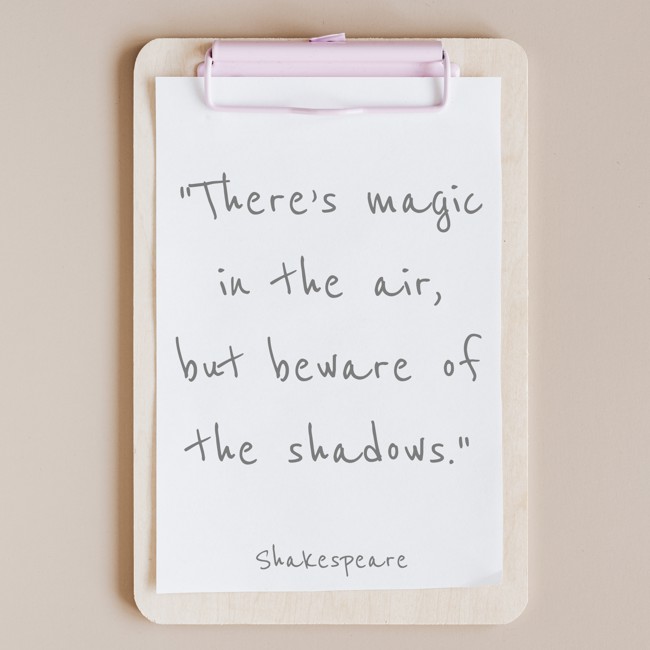 "There's magic
in the air,
but beware of
the shadows."
Shakespeare